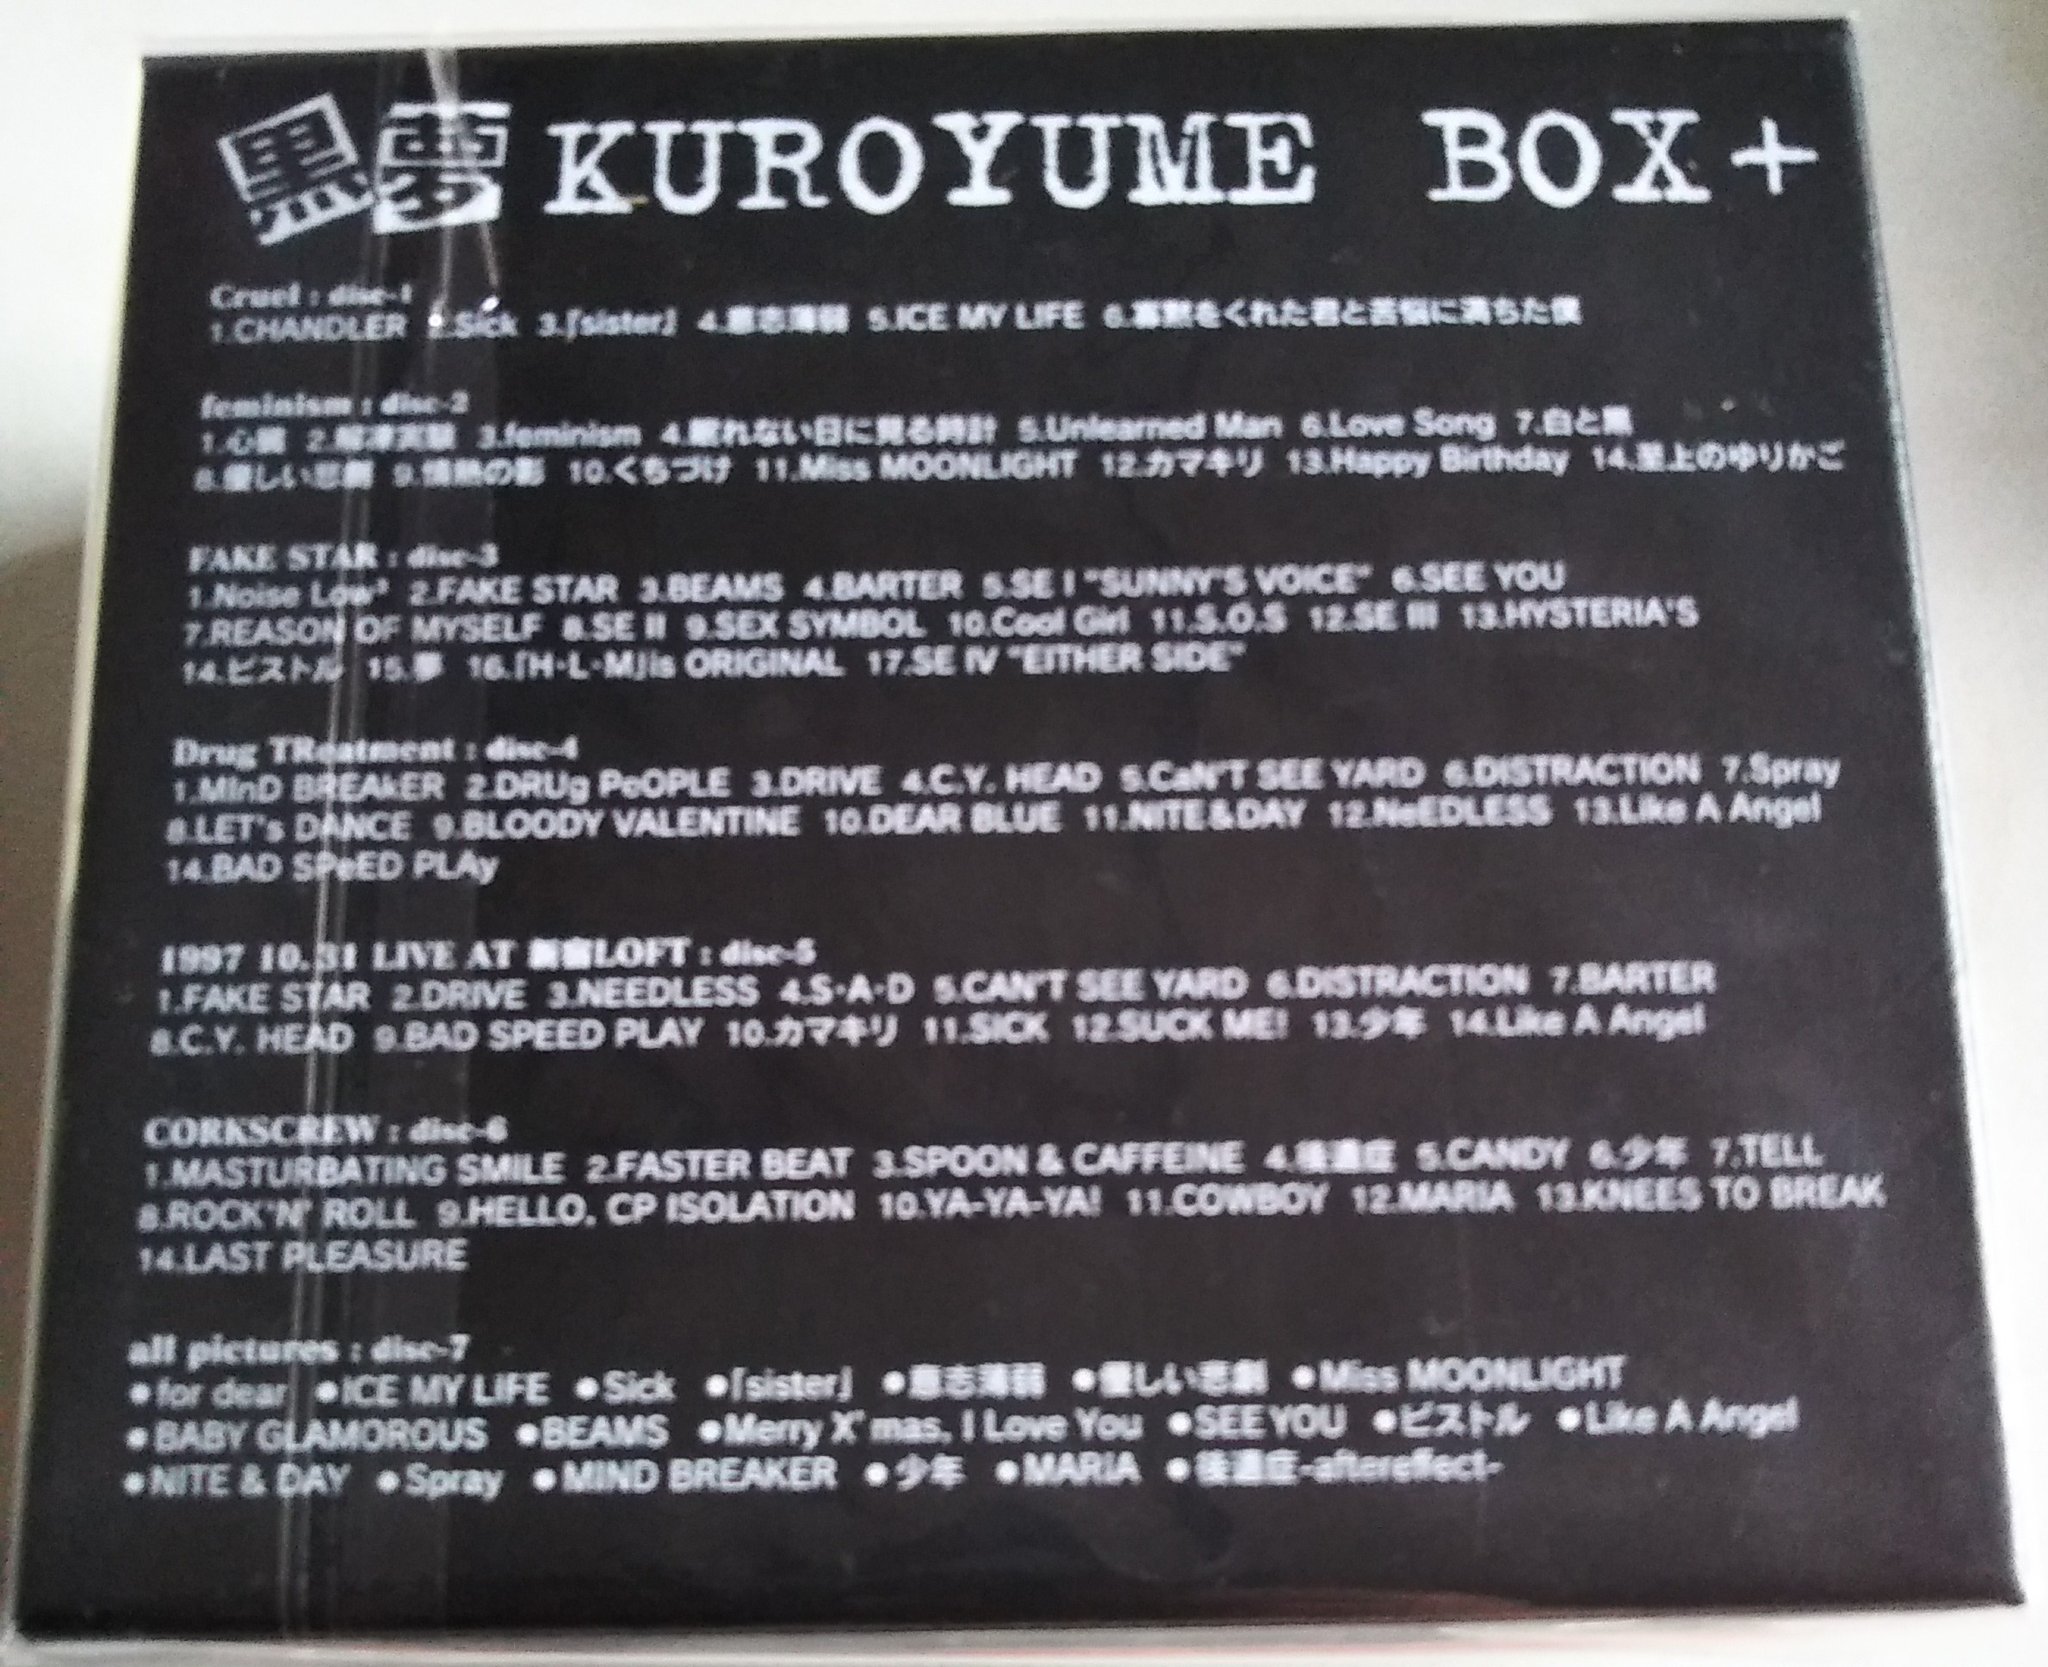 黒夢 KUROYUME BOX+
Cruel : disc-1
1.CHANDLER 2.Sick 3.「sister」 4.意志薄弱 5.ICE MY LIFE 6.寡黙をくれた君と苦悩に満ちた僕
feminism : disc-2
1.心臓 2.解凍実験 3.feminism 4.眠れない日に見る時計 5.Unlearned Man 6.Love Song 7.白と黒
8.優しい悲劇 9.情熱の影 10.くちづけ 11.Miss MOONLIGHT 12.カマキリ 13.Happy Birthday 14.至上のゆりかご
FAKE STAR : disc-3
1.Noise Low³ 2.FAKE STAR 3.BEAMS 4.BARTER 5.SE I "SUNNY'S VOICE" 6.SEE YOU
7.REASON OF MYSELF 8.SE II 9.SEX SYMBOL 10.Cool Girl 11.S.O.S 12.SE III 13.HYSTERIA'S
14.ピストル 15.夢 16.「H・L・M」is ORIGINAL 17.SE IV "EITHER SIDE"
Drug TReatment : disc-4
1.MInD BREAkER 2.DRUg PeOPLE 3.DRIVE 4.C.Y. HEAD 5.CaN'T SEE YARD 6.DISTRACTION 7.Spray
8.LET's DANCE 9.BLOODY VALENTINE 10.DEAR BLUE 11.NITE&DAY 12.NeEDLESS 13.Like A Angel
14.BAD SPeED PLAy
1997 10.31 LIVE AT 新宿LOFT : disc-5
1.FAKE STAR 2.DRIVE 3.NEEDLESS 4.S・A・D 5.CAN'T SEE YARD 6.DISTRACTION 7.BARTER
8.C.Y. HEAD 9.BAD SPEED PLAY 10.カマキリ 11.SICK 12.SUCK ME! 13.少年 14.Like A Angel
CORKSCREW : disc-6
1.MASTURBATING SMILE 2.FASTER BEAT 3.SPOON & CAFFEINE 4.後遺症 5.CANDY 6.少年 7.TELL
8.ROCK'N' ROLL 9.HELLO, CP ISOLATION 10.YA-YA-YA! 11.COWBOY 12.MARIA 13.KNEES TO BREAK
14.LAST PLEASURE
all pictures : disc-7
●for dear ●ICE MY LIFE ●Sick ●「sister」 ●意志薄弱 ●優しい悲劇 ●Miss MOONLIGHT
●BABY GLAMOROUS ●BEAMS ●Merry X'mas, I Love You ●SEE YOU ●ピストル ●Like A Angel
●NITE & DAY ●Spray ●MIND BREAKER ●少年 ●MARIA ●後遺症-aftereffect-